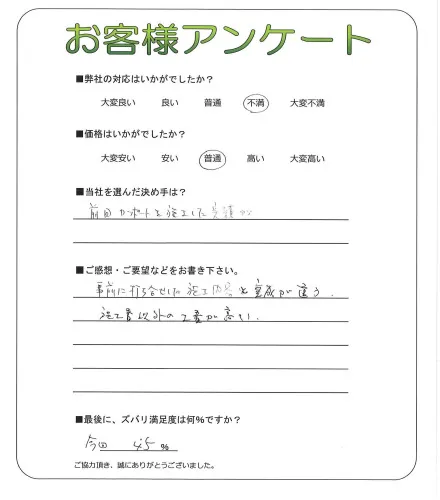 お客様アンケート
■弊社の対応はいかがでしたか？
大変良い 良い 普通 不満 大変不満
■価格はいかがでしたか？
大変安い 安い 普通 高い 大変高い
■当社を選んだ決め手は？
前回カーポートを施工した実績から
■ご感想・ご要望などをお書き下さい。
事前に打ち合せした施工内容と完成が違う.
施工書以外の工事が高い.
■最後に、ズバリ満足度は何%ですか？
今回 45 %
ご協力頂き、誠にありがとうございました。